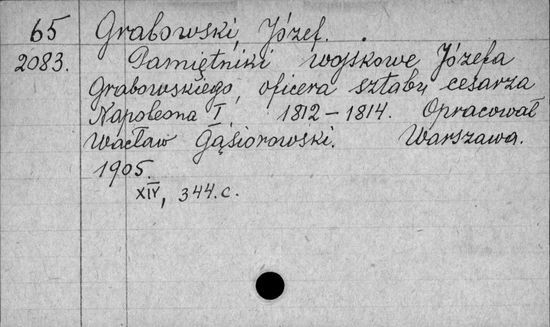 65 Grabowski, Józef.
2083. Pamiętniki wojskowe Józefa
Grabowskiego, oficera sztabu cesarza
Napoleona I, 1812-1814. Opracował
Wacław Gąsiorowski. Warszawa.
1905.
XIV, 344.c.